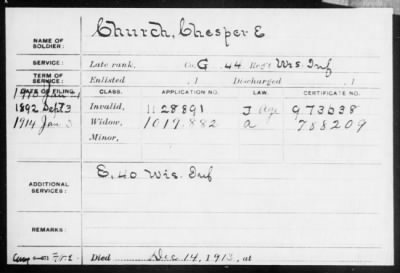 NAME OF SOLDIER: Church, Chesper E
SERVICE: Late rank, Co. G, 44 Reg't Wis. Inf
TERM OF SERVICE: Enlisted , 1 Discharged , 1
DATE OF FILING. CLASS. APPLICATION NO. LAW. CERTIFICATE NO.
1892 Sept 3 Invalid, 1128891 J Age 973638
1914 Jan 3 Widow, 1019.882 a 768209
Minor,
ADDITIONAL SERVICES: E, 40 Wis. Inf
REMARKS:
Died Dec 14, 1913, at